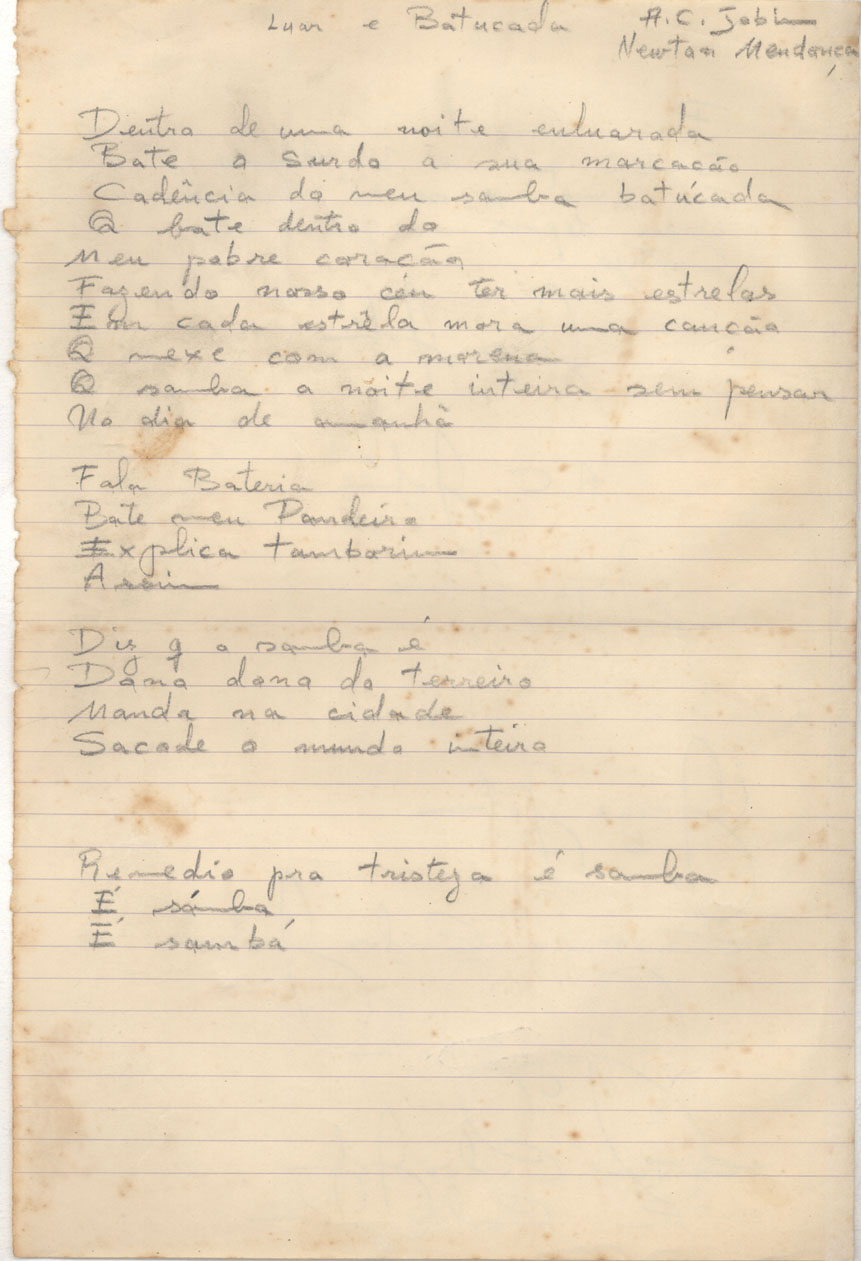 Luar e Batucada
A.C. Jobim
Newton Mendonça
Dentro de uma noite enluarada
Bate o surdo a sua marcação
Cadência do meu samba batucada
Q bate dentro do
Meu pobre coração
Fazendo nosso céu ter mais estrelas
Em cada estrêla mora uma canção
Q mexe com a morena
Q samba a noite inteira sem pensar
No dia de amanhã
Fala Bateria
Bate meu Pandeiro
Explica tamborim
Assim
Diz q o samba é
Dona dona do terreiro
Manda na cidade
Sacode o mundo inteiro
Remedio pra tristeza é samba
É sambá
É sambá